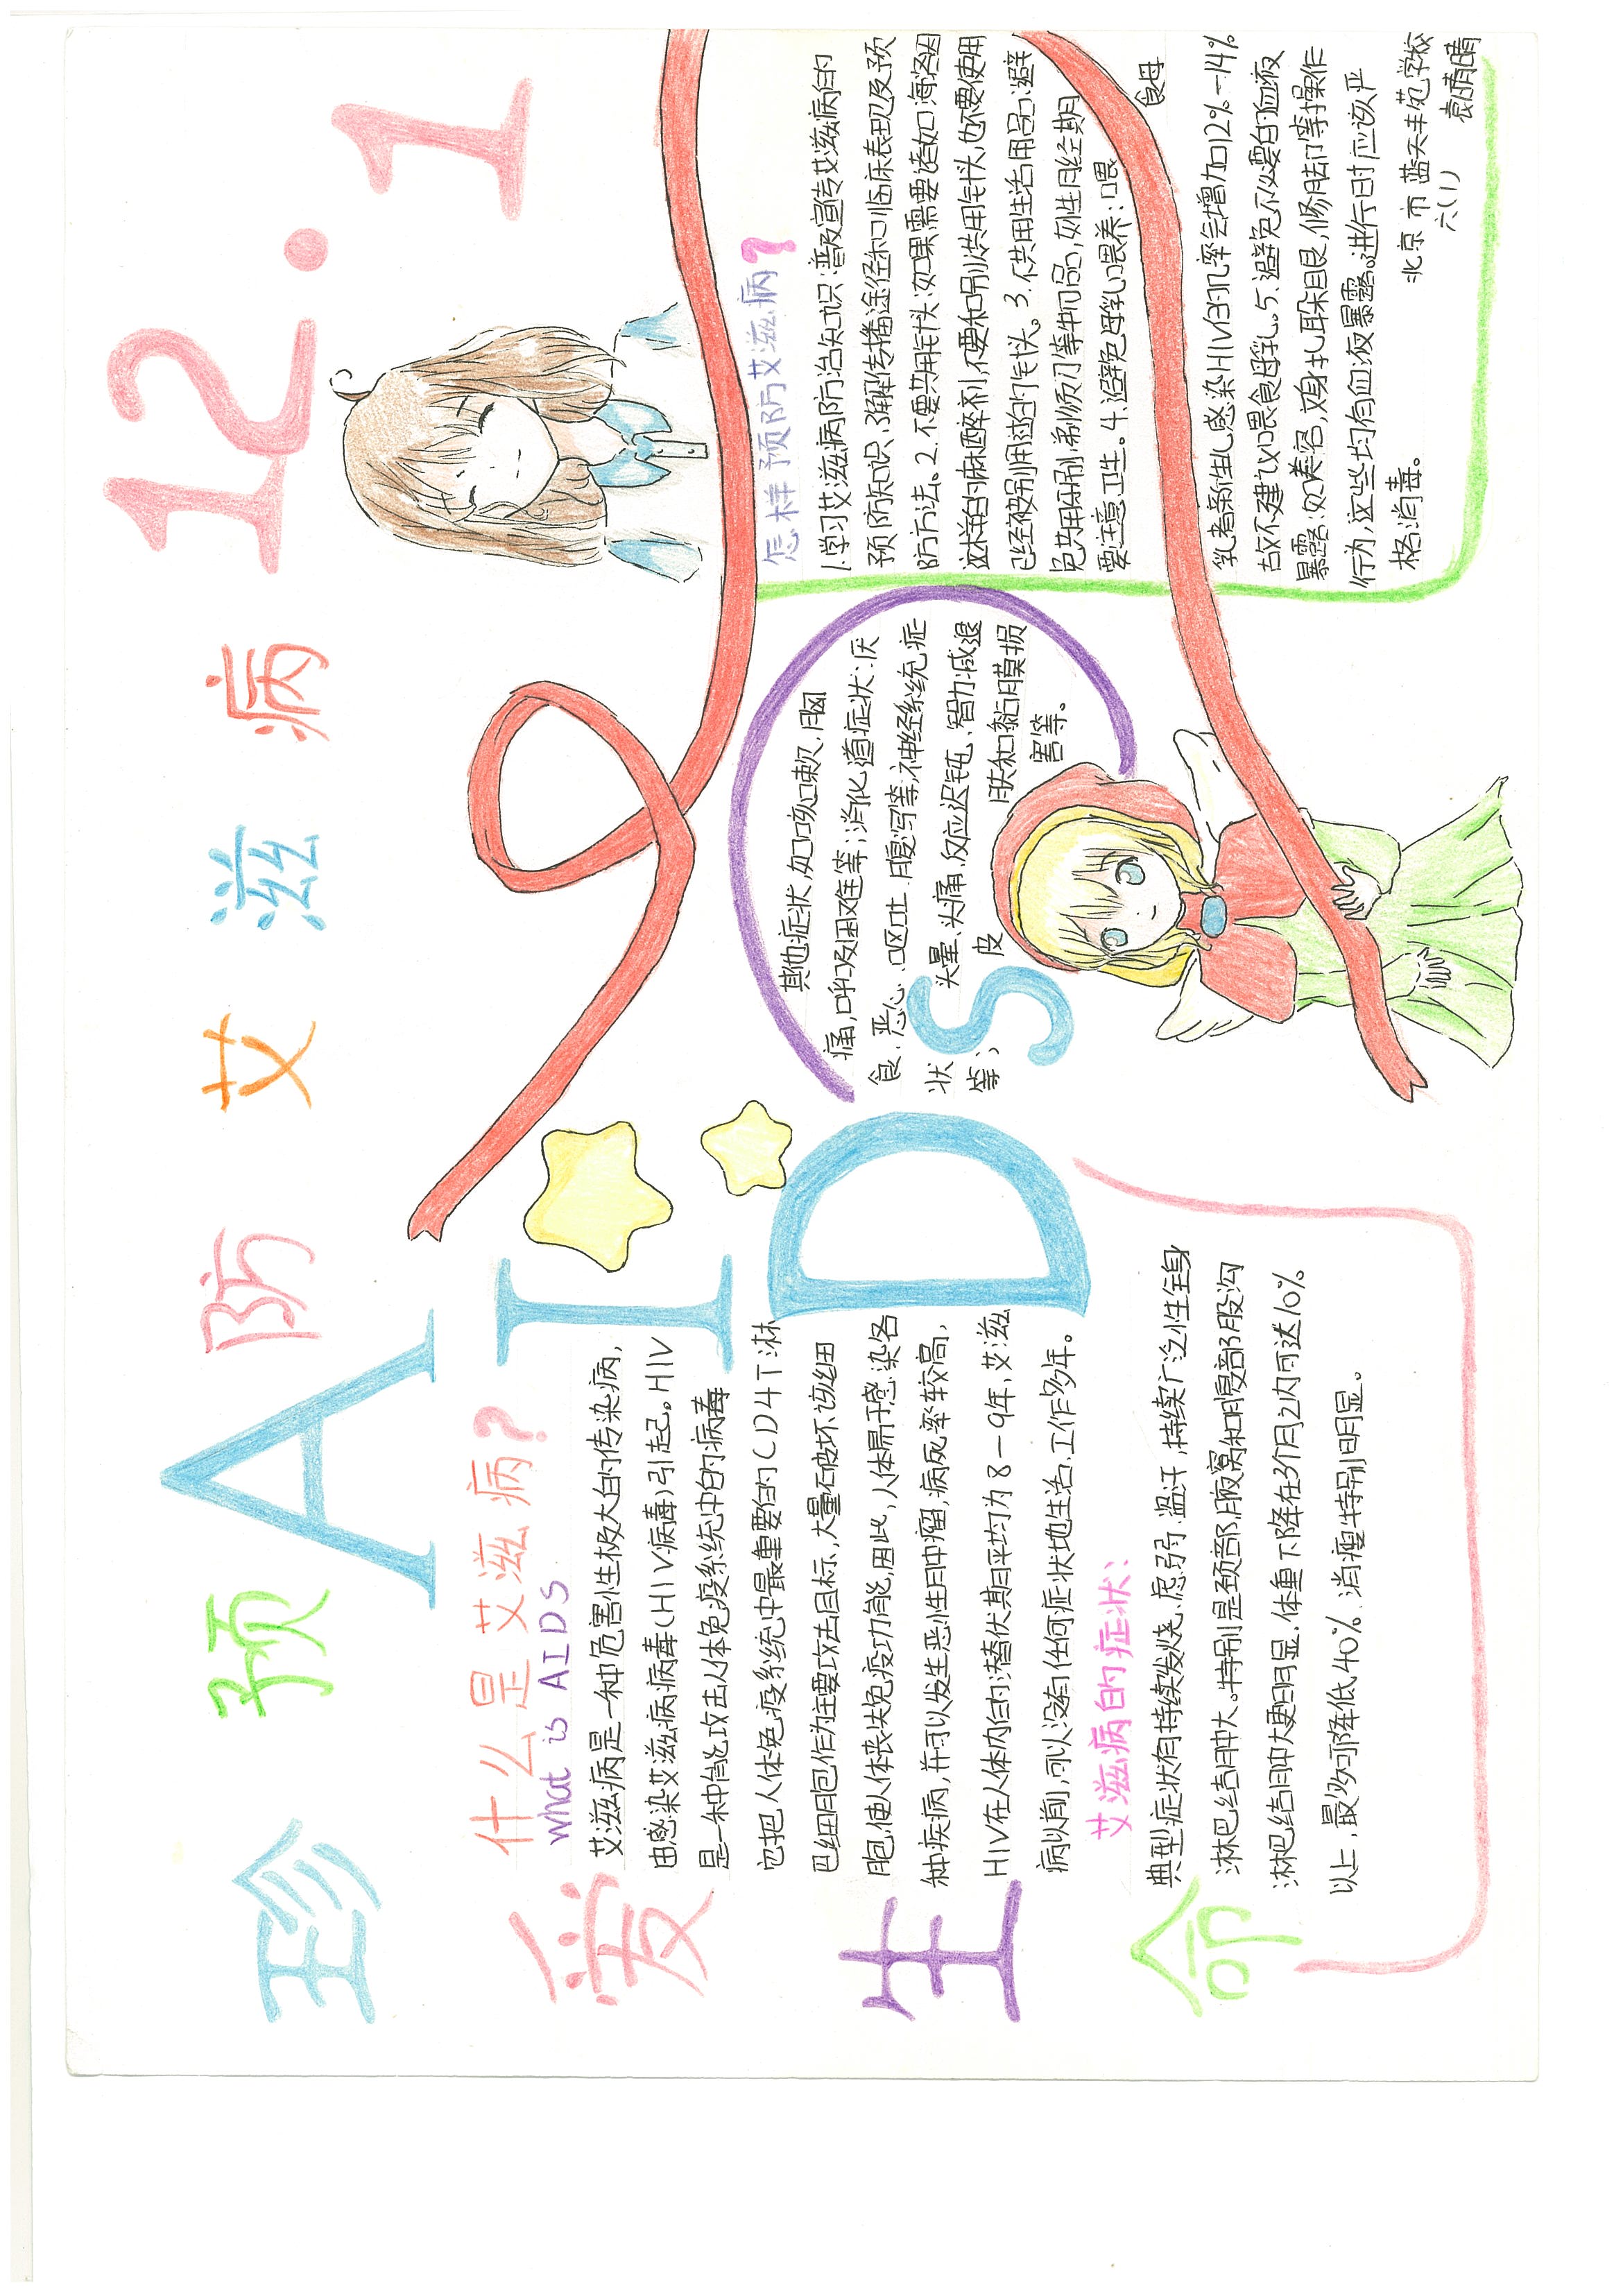 珍 预 防 艾 滋 病 12.1
爱
生
命
AIDS
什么是艾滋病?
what is AIDS
艾滋病是一种危害性极大的传染病,
由感染艾滋病病毒(HIV病毒)引起。HIV
是一种能攻击人体免疫系统中的病毒
它把人体免疫系统中最重要的CD4T淋
巴细胞作为主要攻击目标,大量破坏该细
胞,使人体丧失免疫功能,因此,人体易于感染各
种疾病,并可以发生恶性肿瘤,病死率较高,
HIV在人体内的潜伏期平均为8-9年,艾滋
病以前,可以没有任何症状地生活、工作多年。
艾滋病的症状:
典型症状有持续发烧、虚弱、盗汗,持续广泛性全身
淋巴结肿大。特别是颈部、腋窝和腹部股沟
淋巴结肿大更明显.体重下降在3个月之内可达10%
以上,最多可降低40%、消瘦特别明显。
其他症状,如咳嗽、胸
痛,呼吸困难等;消化道症状:厌
食、恶心、呕吐、腹泻等;神经系统症
状 头晕、头痛、反应迟钝、智力减退
等; 皮肤和黏膜损
害等。
怎样预防艾滋病?
1.学习艾滋病防治知识:普及宣传艾滋病的
预防知识、了解传播途径和临床表现及预
防方法、2.不要共用针头:如果需要诸如海洛因
这样的麻醉剂,不要和别人共用针头,也不要使用
已经被别人用过的针头。3.不共用生活用品:避
免共用体别、剃须刀等物品,女性月经期
要注意卫生。4.避免母乳喂养:喂 食母
乳者新生儿感染HIV的几率会增加12%-14%
故不建议喂食母乳。5.避免不必要的血液
暴露:如美容,文身、扎耳朵眼,修脚等操作
行为,这些均有血液暴露。进行时应该严
格消毒。
北京市蓝天丰苑学校
六(1) 袁晴晴